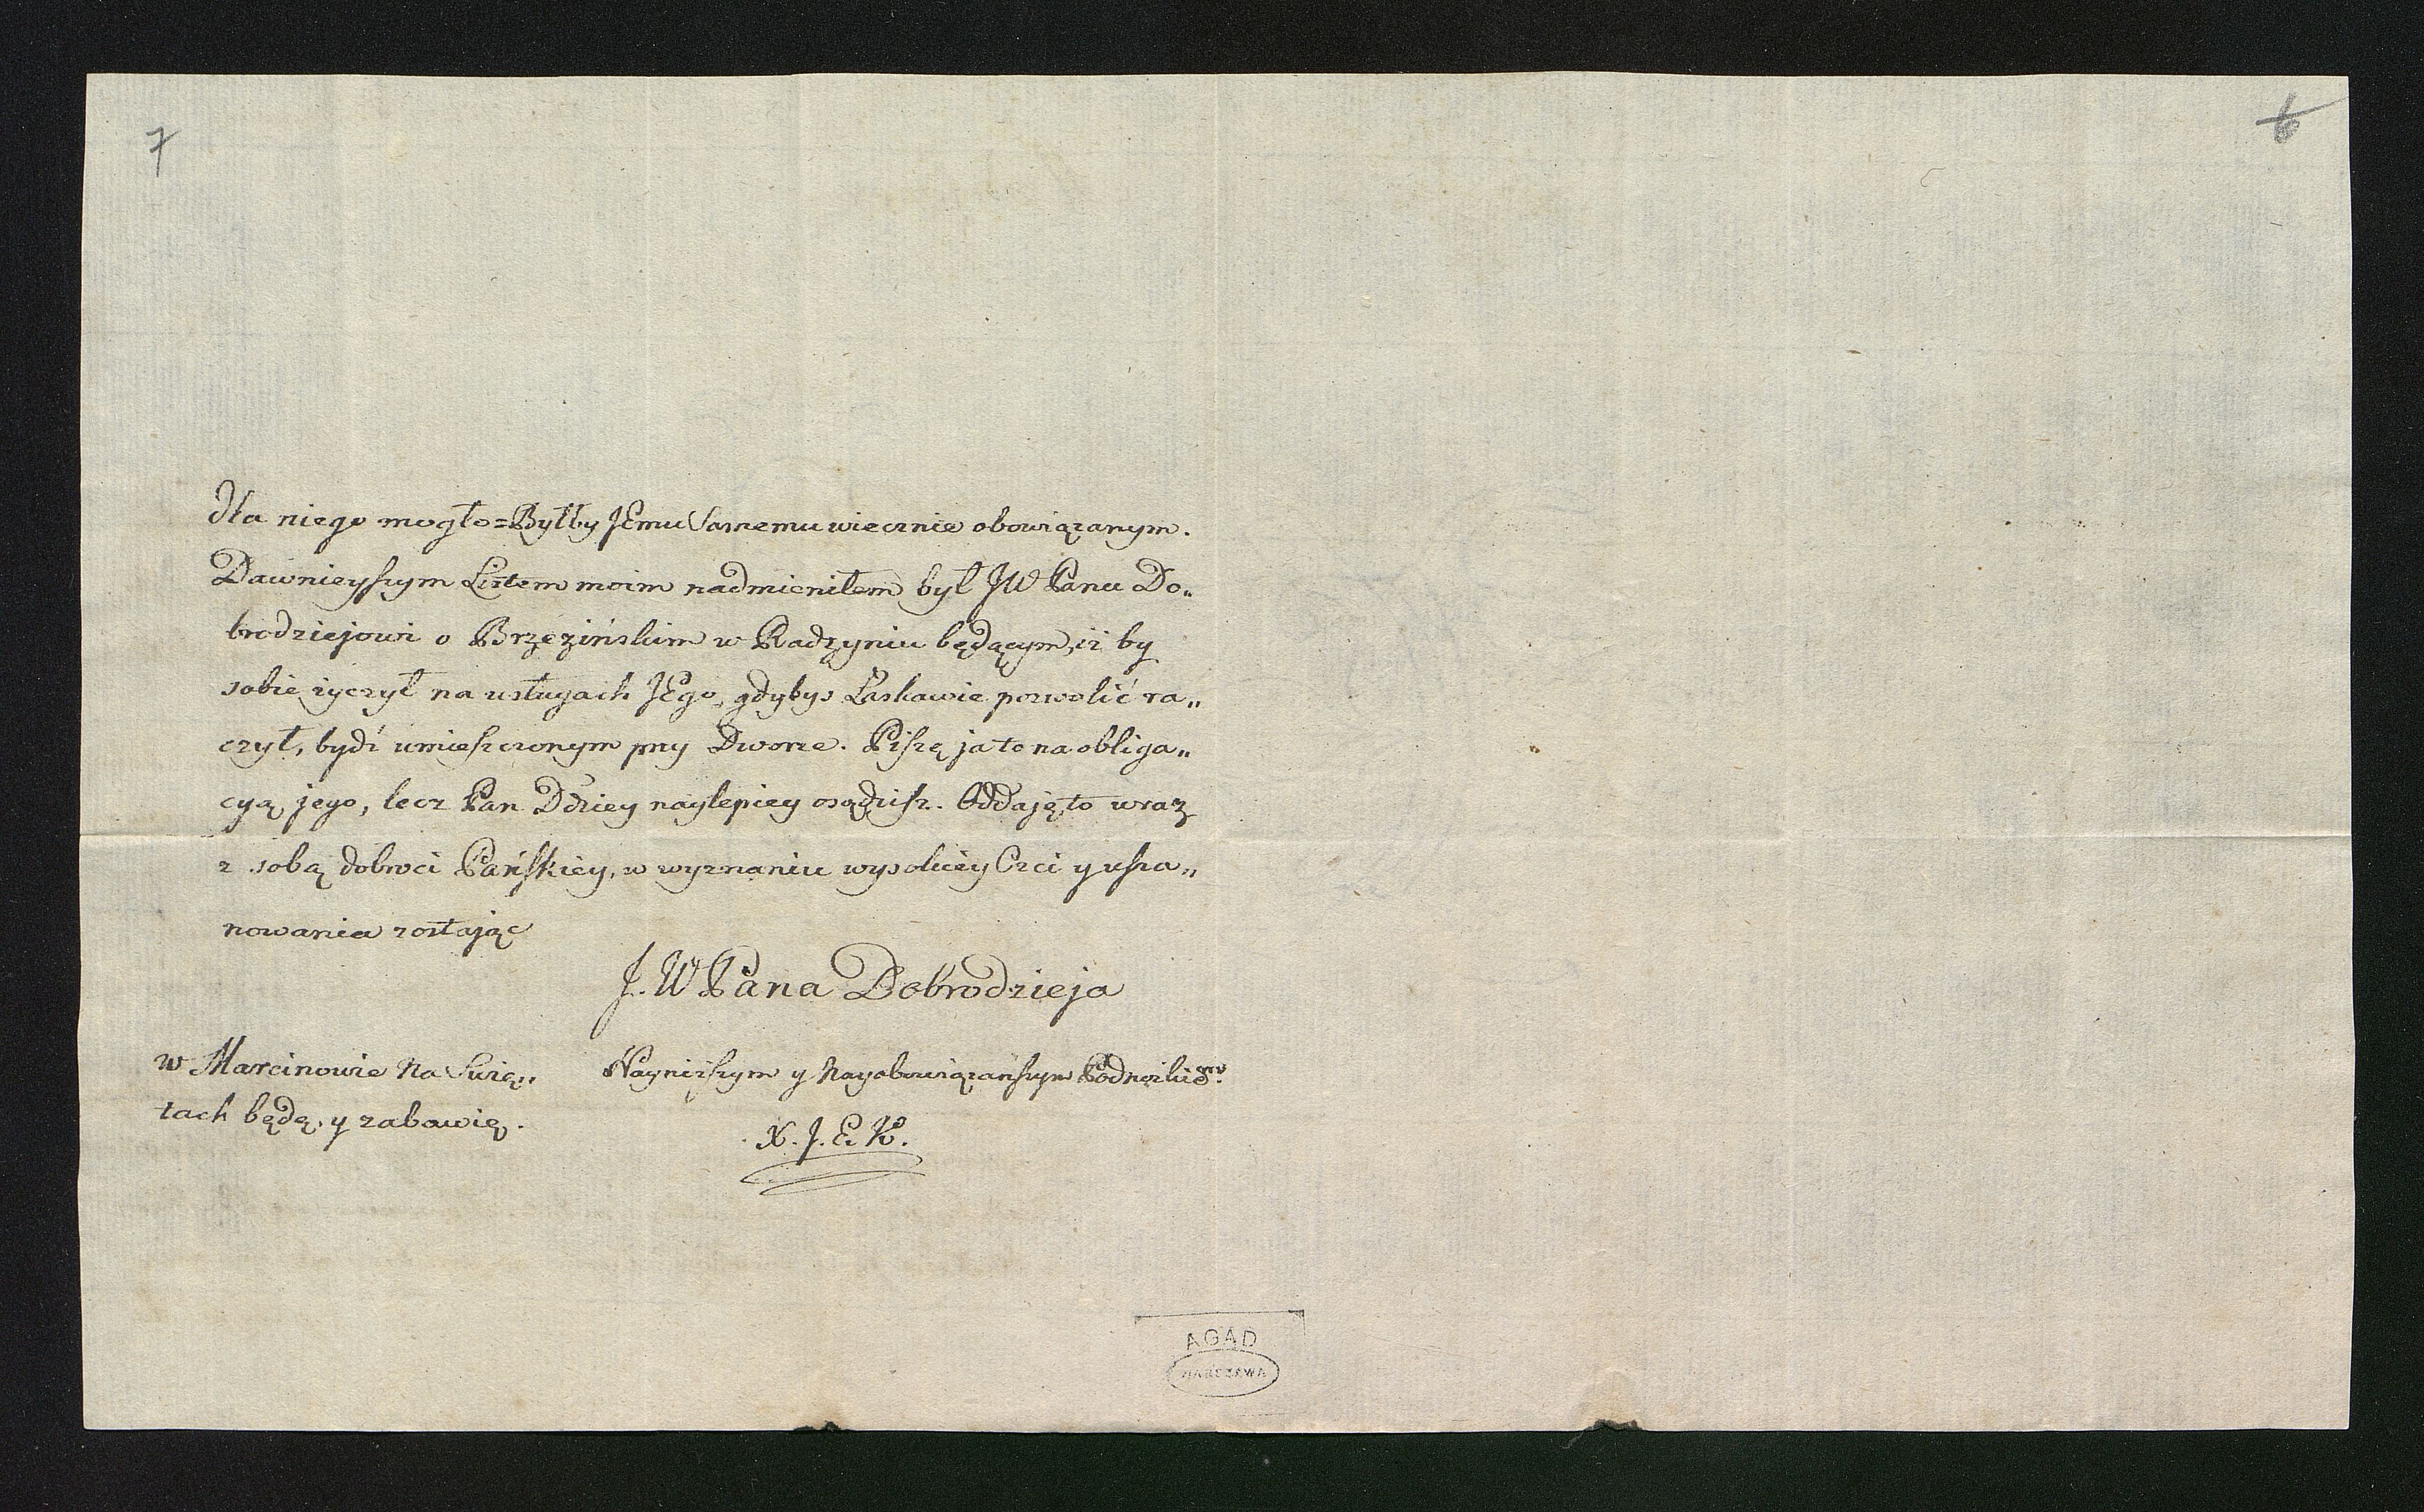 7
6
dla niego mogło=Byłby JEmu Samemu wiecznie obowiązanym.
Dawnieyszym Listem moim nadmieniłem był JW Panu Do„
brodziejowi o Brzezińskim w Radzyniu będącym, iż by
sobie życzył na usługach JEgo, gdybyś Łaskawie pozwolić ra„
czył, bydź umieszczonym przy Dworze. Piszę ja to na obliga„
cyą jego, lecz Pan Ddziey naylepiey osądzisz. Oddaję to wraz
z sobą dobroci Pańskiey, w wyznaniu wysokiey Czci y usza„
nowania zostając
J. W Pana Dobrodzieja
w Marcinowie Na Świę„
tach będę, y zabawię.
Nayniższym y Nayobowiązańszym Podnóżkiem
X. J. E. K.
AGAD
WARSZAWA